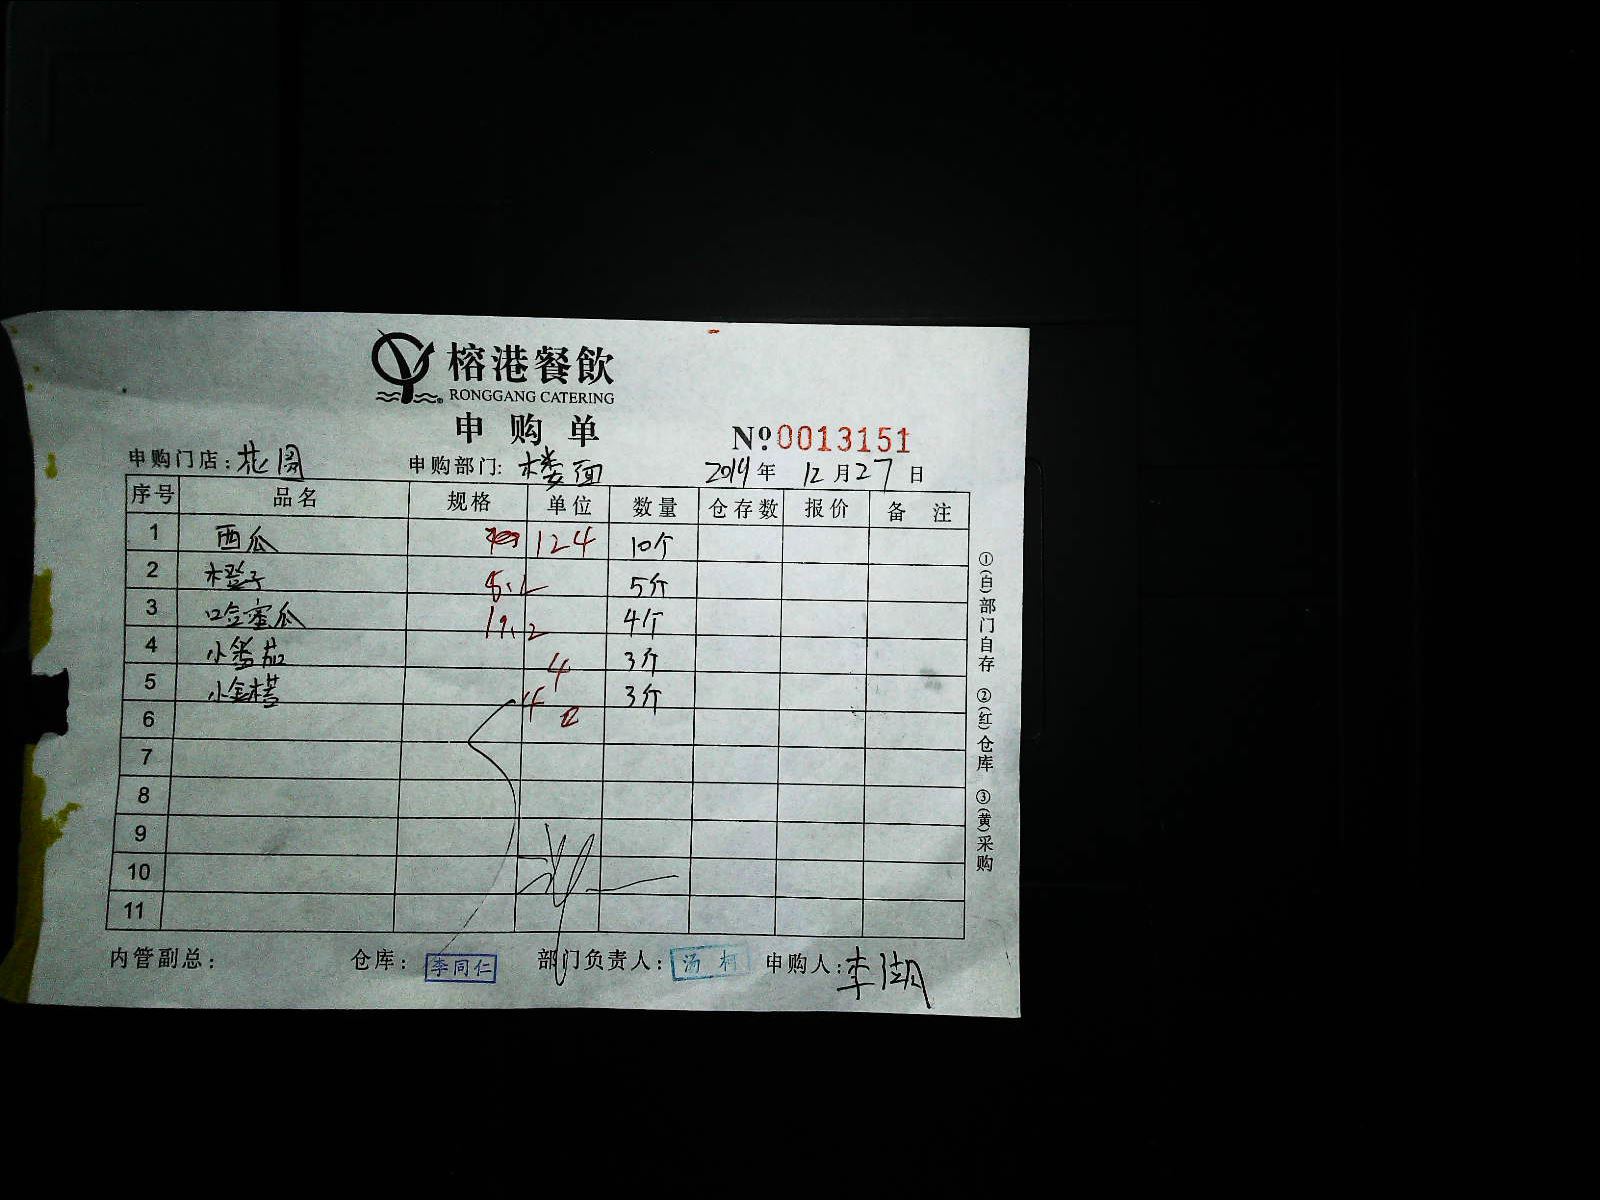 榕港餐飲
RONGGANG CATERING
申购单
№0013151
申购门店：花园 申购部门：楼面 2019年 12月27日
序号 品名 规格 单位 数量 仓存数 报价 备注
1 西瓜 124 10个
2 橙子 8.2 5斤
3 哈蜜瓜 19.2 4个
4 小番茄 4 3斤
5 小金桔 4 3斤
6
7
8
9
10
11
①(白)部门自存 ②(红)仓库 ③(黄)采购
内管副总： 仓库：李同仁 部门负责人：汤柯 申购人：李湖